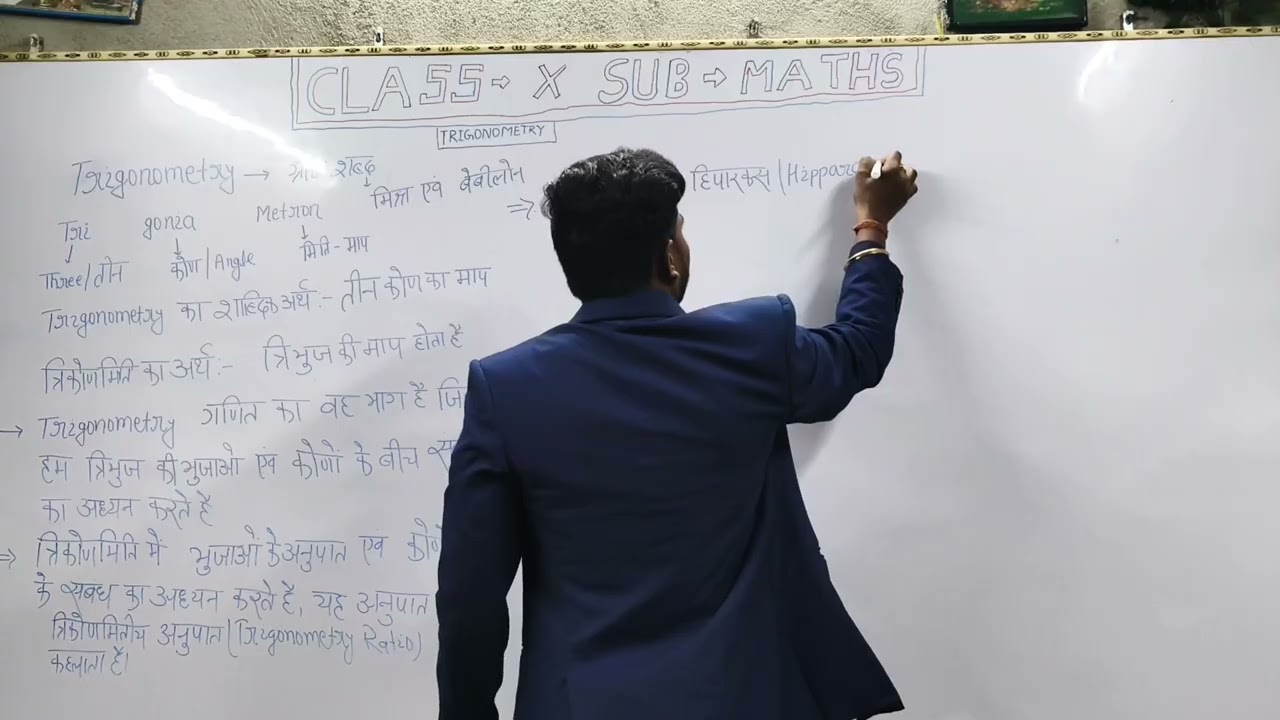 CLASS → X SUB → MATHS
TRIGONOMETRY
Trigonometry → शब्द
मिस्रा एवं बेबीलोन
⇒ हिपारकस (Hippar
Tri gonia Metron
↓ ↓ ↓
Three/तीन कोण/Angle मिति-माप
Trigonometry का शाब्दिक अर्थ:- तीन कोण का माप
त्रिकोणमिति का अर्थ:- त्रिभुज की माप होता है
→ Trigonometry गणित का वह भाग है
हम त्रिभुज की भुजाओ एवं कोणों के बीच
का अध्यन करते है
⇒ त्रिकोणमिति में भुजाओं के अनुपात एवं
के संबध का अध्यन करते है, यह अनुपात
त्रिकोणमितीय अनुपात (Trigonometry Ratio)
कहलाता है।